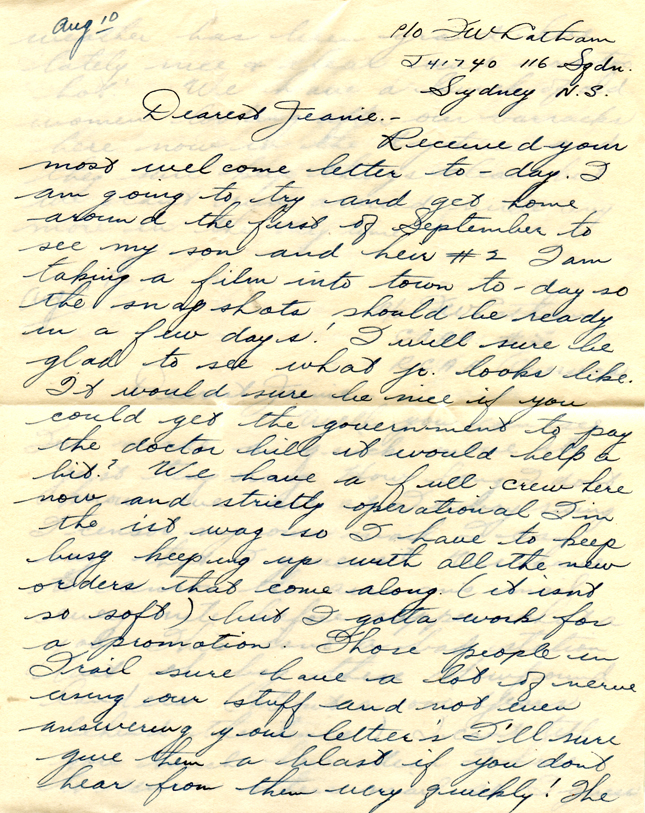 Aug 10
P/O F W Latham
J41740 116 Sqdn.
Sydney N.S.
Dearest Jeanie.-
Received your
most welcome letter to-day. I
am going to try and get home
around the first of September to
see my son and heir #2 I am
taking a film into town to-day so
the snapshots should be ready
in a few days! I will sure be
glad to see what jr. looks like.
It would sure be nice if you
could get the government to pay
the doctor bill it would help a
bit? We have a full crew here
now and strictly operational I'm
the 1st wag so I have to keep
busy keeping up with all the new
orders that come along. (it isnt
so soft) but I gotta work for
a promotion. Those people in
Trail sure have a lot of nerve
using our stuff and not even
answering your letter's I'll sure
give them a blast if you dont
hear from them very quickly! The